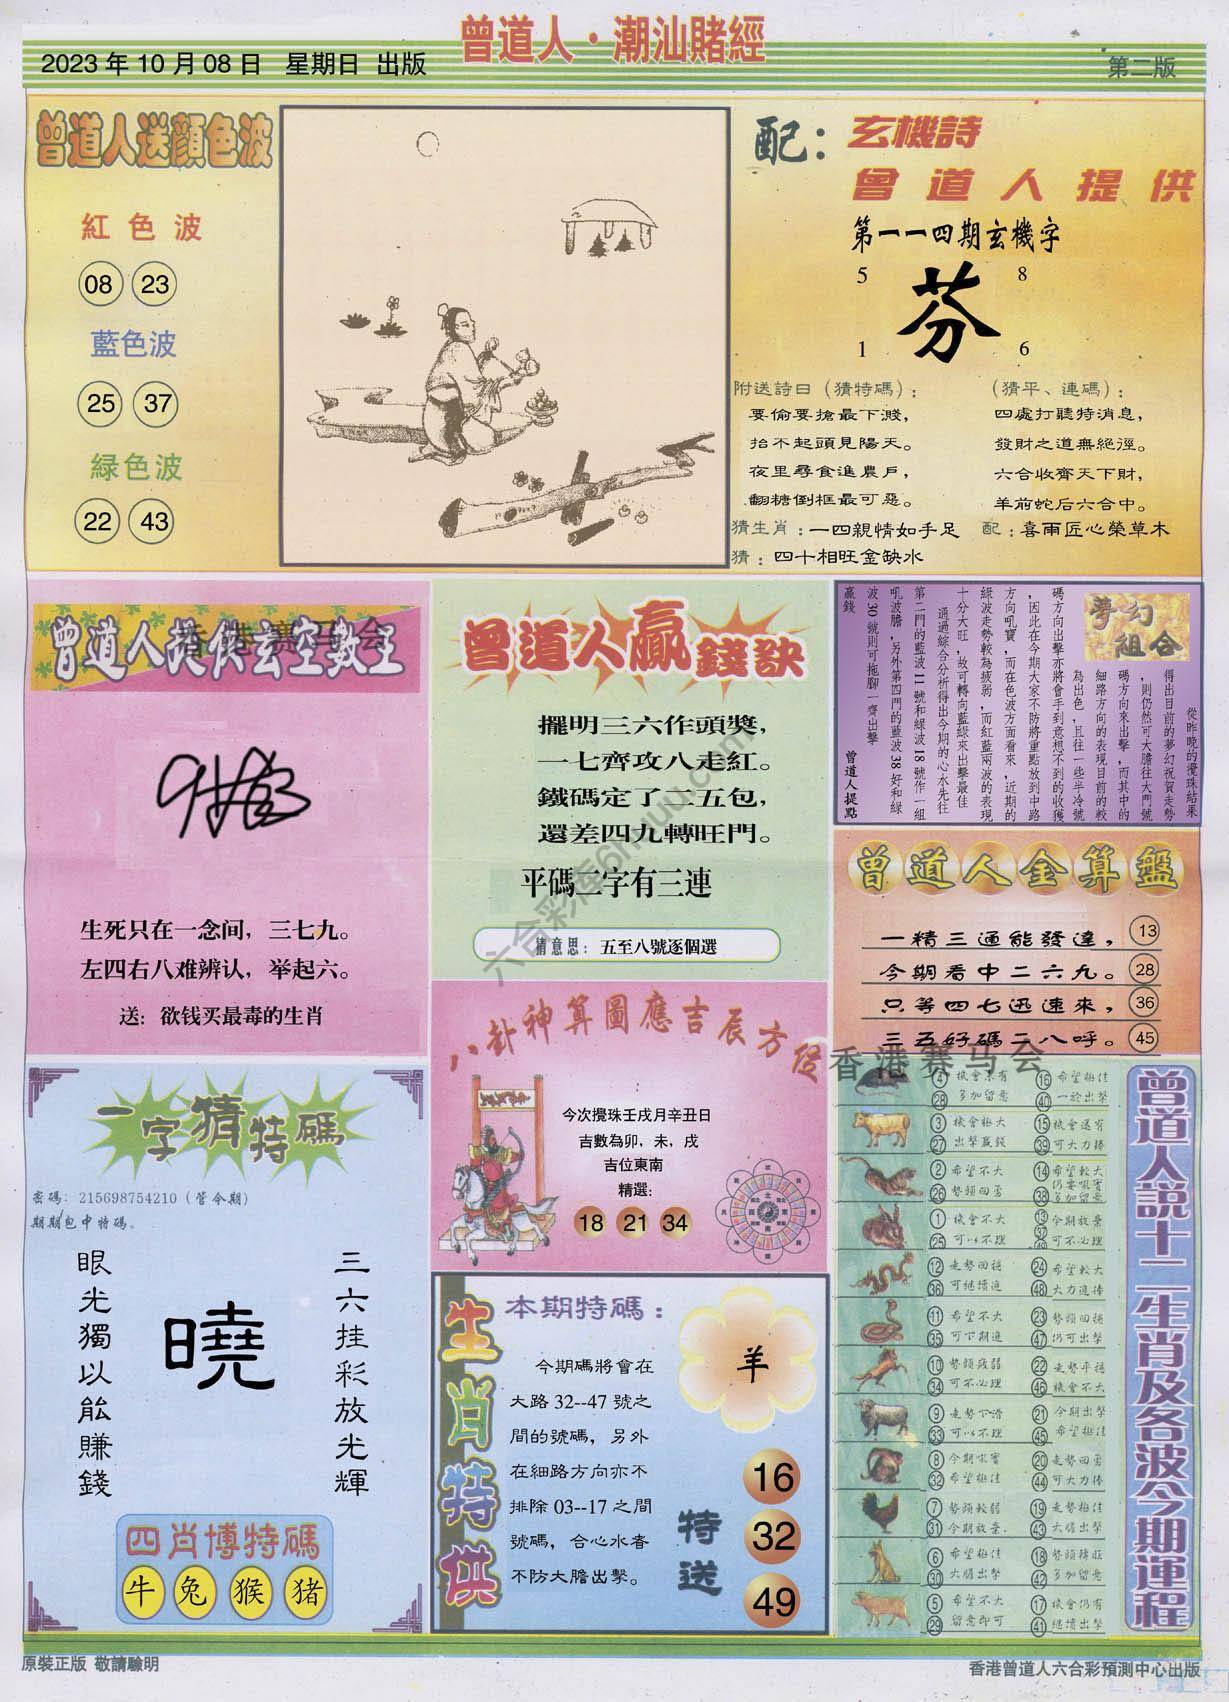 曾道人·潮汕賭經
2023年10月08日 星期日 出版
第二版
曾道人送顏色波
紅色波
08 23
藍色波
25 37
緑色波
22 43
配：玄機詩
曾道人提供
第一一四期玄機字
5 8
芬
1 6
附送詩曰（猜特碼）：
要偷要搶最下濺，
抬不起頭見陽天。
夜里尋食進農戶，
翻糖倒框最可惡。
（猜平、連碼）：
四處打聽特消息，
發財之道無絕徑。
六合收齊天下財，
羊前蛇后六合中。
猜生肖：一四親情如手足
配：喜雨匠心榮草木
猜：四十相旺金缺水
曾道人提供玄空數王
香港赛马会
生死只在一念间，三七九。
左四右八难辨认，举起六。
送：欲钱买最毒的生肖
曾道人贏錢訣
擺明三六作頭獎，
一七齊攻八走紅。
鐵碼定了二五包，
還差四九轉旺門。
平碼二字有三連
猜意思：五至八號逐個選
六合彩库6huu.com
夢幻組合
從昨晚的攪珠結果
得出目前的夢幻祝賀走勢
，則仍然可大膽往大門號
碼方向來出擊，而其中的
細路方向的表現目前的較
為出色，且往一些半冷號
碼方向出擊亦將會手到意想不到的收獲
，因此在今期大家不防將重點放到中路
方向吼寶，而在色波方面看來，近期的
綠波走勢較為疲弱，而紅藍兩波的表現
十分大旺，故可轉向藍綠來出擊最佳
通過綜合分析得出今期的心水先往
第二門的藍波11號和綠波18號作一組
吼波膽，另外第四門的藍波38好和綠
波30號則可拖腳一齊出擊
贏錢
曾道人提點
曾道人金算盤
一精三通能發達， 13
今期看中二六九。 28
只等四七迅速來， 36
三五好碼二八呼。 45
香港赛马会
八卦神算圖應吉辰方位
今次攪珠壬戌月辛丑日
吉數為卯，未，戌
吉位東南
精選：
18 21 34
一字猜特碼
密碼：215698754210（管令期）
期期包中特碼。
三六挂彩放光輝
曉
眼光獨以能賺錢
四肖博特碼
牛 兔 猴 猪
生肖特供
本期特碼：
今期碼將會在
大路32--47號之
間的號碼，另外
在細路方向亦不
排除03--17之間
號碼，合心水者
不防大膽出擊。
羊
特送
16
32
49
曾道人説十二生肖及各波今期運程
4 機會未有 16 希望極佳
28 多加留意 40 一於出擊
3 機會極大 15 機會還有
27 出擊贏錢 39 可大力捧
2 希望不大 14 希望較大
26 勢頭回勇 38 仍要吼實 多加留意
1 機會不大 13 今期放棄
25 可以不理 37 49 可不必理
12 走勢回穩 24 希望較大
36 可繼續追 48 大力追捧
11 希望不大 23 勢頭回穩
35 可下期追 47 仍可出擊
10 勢頭疲弱 22 走勢平穩
34 可不必理 46 機會不大
9 走勢下滑 21 今期出擊
33 可以不理 45 希望極佳
8 今期吼實 20 走勢回勇
32 希望極佳 44 可大力捧
7 勢頭較弱 19 走勢極佳
31 今期放棄. 43 大膽出擊
6 希望極佳 18 勢頭轉旺
30 大膽出擊 42 多加留意
5 希望不大 17 機會仍有
29 留意即可 41 継續出擊
原裝正版 敬請驗明
香港曾道人六合彩預測中心出版